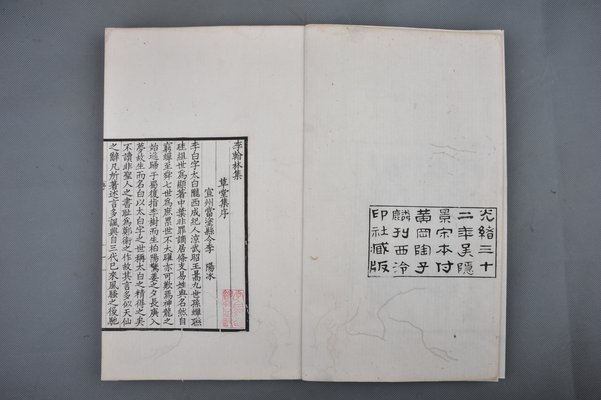 光緒三十
二年吳隱
景宋本付
黃岡陶子
麟刊西泠
印社藏版
李翰林集
草堂集序
宣州當塗縣令李 陽冰
李白字太白隴西成紀人涼武昭王暠九世孫蟬聯
珪組世為顯著中葉非罪謫居條支易姓與名然自
窮蟬至舜七世為庶累世不大曜亦可歎焉神龍之
始逃歸于蜀復指李樹而生伯陽驚姜之夕長庚入
夢故生而名白以太白字之世稱太白之精得之矣
不讀非聖人之書恥為鄭衛之作故其言多似天仙
之辭凡所著述言多諷興自三代已來風騷之後馳